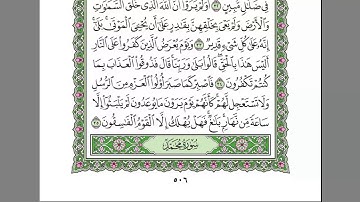 فِى ضَلَٰلٍ مُّبِينٍ ٣٢ أَوَلَمْ يَرَوْا۟ أَنَّ ٱللَّهَ ٱلَّذِى خَلَقَ ٱلسَّمَٰوَٰتِ
وَٱلْأَرْضَ وَلَمْ يَعْىَ بِخَلْقِهِنَّ بِقَٰدِرٍ عَلَىٰٓ أَن يُحْـِۧىَ ٱلْمَوْتَىٰ ۚ بَلَىٰٓ
إِنَّهُۥ عَلَىٰ كُلِّ شَىْءٍ قَدِيرٌ ٣٣ وَيَوْمَ يُعْرَضُ ٱلَّذِينَ كَفَرُوا۟ عَلَى ٱلنَّارِ
أَلَيْسَ هَٰذَا بِٱلْحَقِّ ۖ قَالُوا۟ بَلَىٰ وَرَبِّنَا ۚ قَالَ فَذُوقُوا۟ ٱلْعَذَابَ بِمَا
كُنتُمْ تَكْفُرُونَ ٣٤ فَٱصْبِرْ كَمَا صَبَرَ أُو۟لُوا۟ ٱلْعَزْمِ مِنَ ٱلرُّسُلِ
وَلَا تَسْتَعْجِل لَّهُمْ ۚ كَأَنَّهُمْ يَوْمَ يَرَوْنَ مَا يُوعَدُونَ لَمْ يَلْبَثُوٓا۟ إِلَّا
سَاعَةً مِّن نَّهَارٍۭ ۚ بَلَٰغٌ ۚ فَهَلْ يُهْلَكُ إِلَّا ٱلْقَوْمُ ٱلْفَٰسِقُونَ ٣٥
سُورَةُ مُحَمَّد
٥٠٦